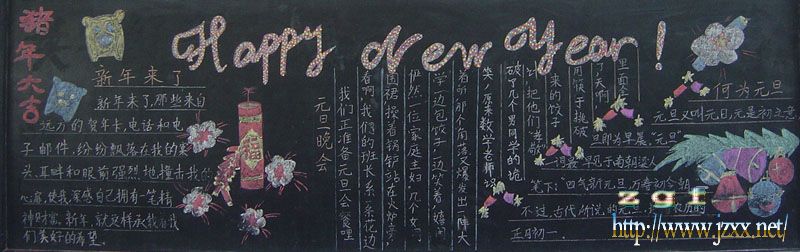 Happy New Year!
猪年大吉
新年来了
新年来了,那些来自
远方的贺年卡,电话和电
子邮件,纷纷飘落在我的案
头,耳畔和眼前强烈地撞击我的
心扉,使我深感自己拥有一笔精
神财富,新年,就这样承载着我
们美好的希望。
福
元旦一晚会
我们正准备元旦会餐里
春啊!我们的班长系一条花边
围裙,操着锅铲站在火炉旁,
俨然一位家庭主妇。几个女
学一边包饺子一边笑着嬉闹
着,听那个角落又爆发出一阵大
笑,原来数学老师
破了几个男同学的诡
计,把他们"孝敬"
来的饺子
用筷子挑破
天啊
里面全
何为元旦
元旦又叫元日,元是初之意
旦即为早晨"元旦"
一词最早见于南朝梁人
笔下:四气新元旦,万寿初今朝
不过,古代所说的元旦,
正月初一.
zgf
http://www.jzxx.net/